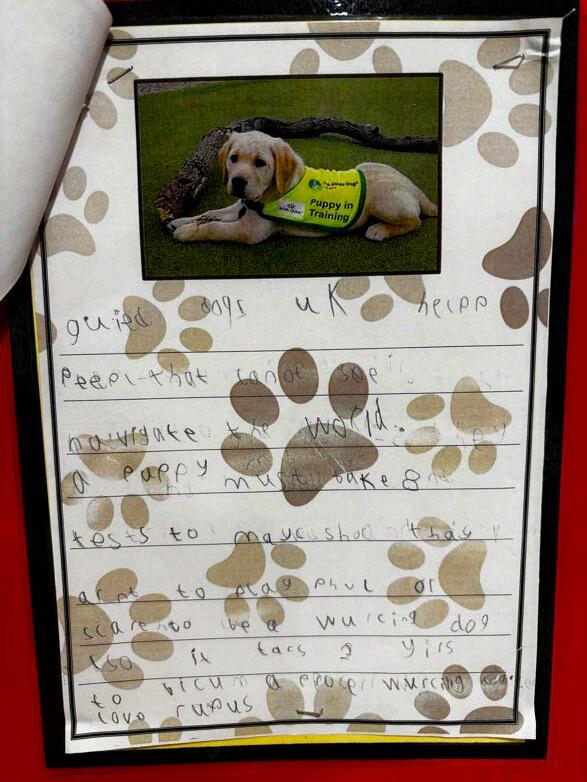 Puppy in
Training
guied dogs uK helpp
peepl that canot see
naivigate the world.
a puppy must take 8
tests to mayc shod thay
arnt to play phul or
scare to be a wurcing dog
also it tacs 2 yirs
to bicum a proper wurcing
love rufus